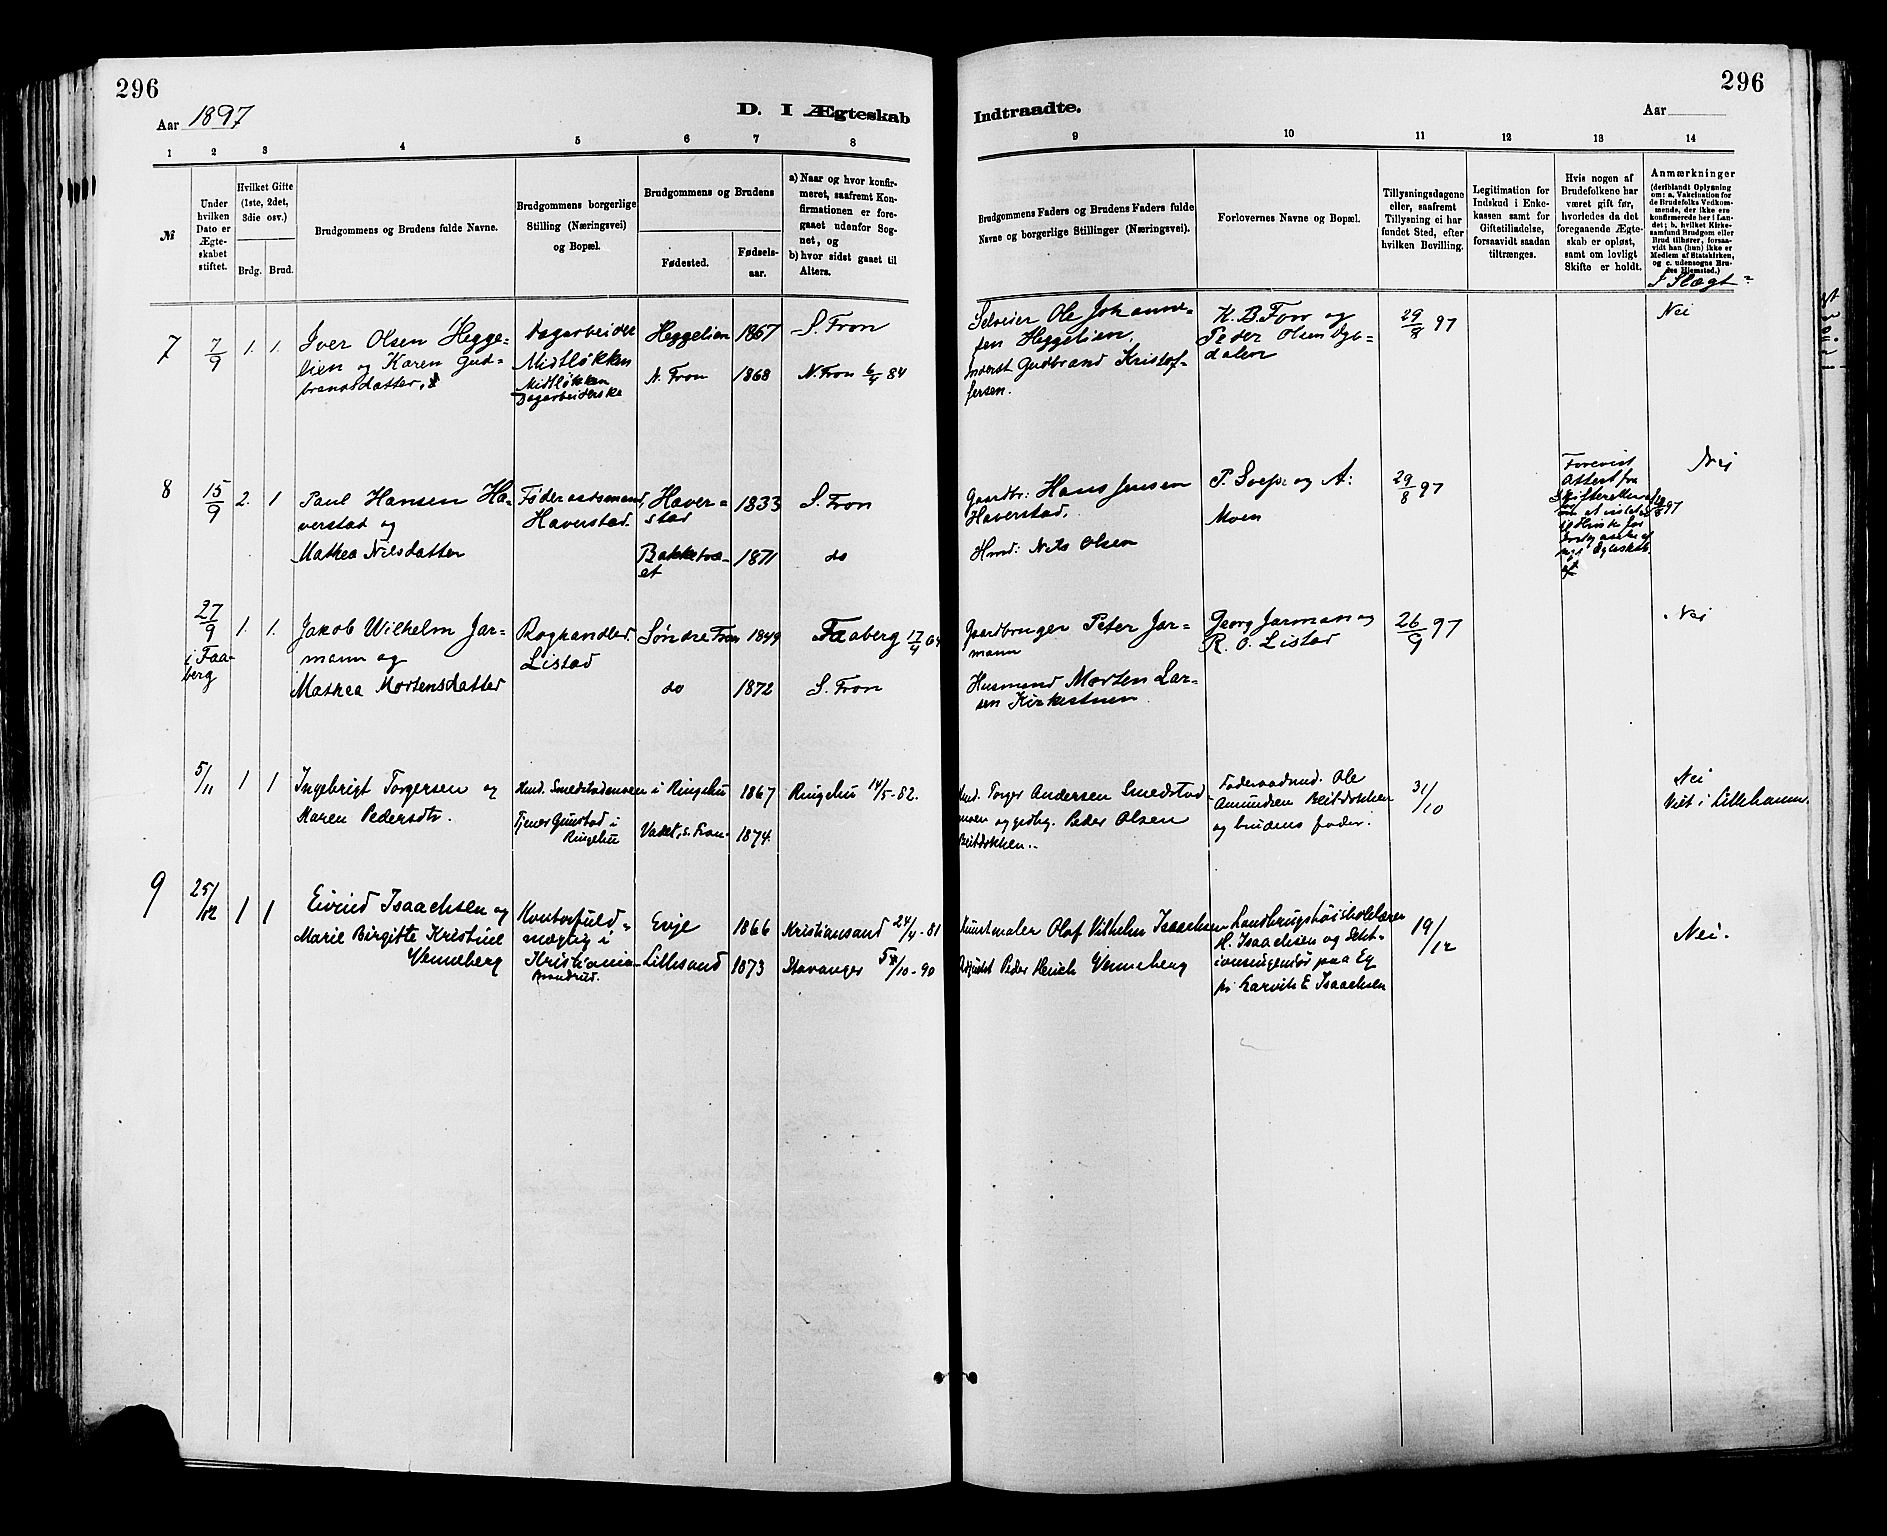 296
296
Aar 1897
D. I Ægteskab
Indtraadte.
Aar
1 2 3 4 5 6 7 8
9 10 11 12 13 14
№
Under
hvilken
Dato er
Ægte-
skabet
stiftet.
Hvilket Gifte
(1ste, 2det,
3die osv.)
Brdg. Brud.
Brudgommens og Brudens fulde Navne.
Brudgommens borgerlige
Stilling (Næringsvei)
og Bopæl.
Brudgommens og Brudens
Fødested.
Fødsels-
aar.
a) Naar og hvor konfir-
meret, saafremt Kon-
firmationen er fore-
gaaet udenfor Sog-
net, og
b) hvor sidst gaaet til
Alters.
Brudgommens Faders og Brudens Faders fulde
Navne og borgerlige Stillinger (Næringsvei).
Forlovernes Navne og Bopæl.
Tillysningsdagene
eller, saafremt
Tillysning ei har
fundet Sted, efter
hvilken Bevilling.
Legitimation for
Indskud i Enke-
kassen samt for
Giftetilladelse,
forsaavidt saadan
tiltrænges.
Hvis nogen af
Brudefolkene har
været gift før,
hvorledes da det
foregaaende Ægte-
skab er opløst,
samt om lovligt
Skifte er holdt.
Anmærkninger
(deriblandt Oplysning
om: a. Vakcination for
de Brudefolks Vedkom-
mende, der ikke ere
konfirmerede her i Lan-
det; b. hvilket Kirke-
samfund Brudgom eller
Brud tilhører, forsaa-
vidt han (hun) ikke er
Medlem af Statskirken,
og c. udensogns Bru-
des Hjemsted.)
I Slægt-
7 7/9 1. 1.
Iver Olsen Hegge-
lien og Karen Gud-
brandsdatter,
Dagarbeider
Midtløkken
Midtløkken
Dagarbeiderske
Heggelien 1867 S. Fron
N. Fron 1868 N. Fron 6/4 84
Selveier Ole Johanne-
sen Heggelien,
Inderst Gudbrand Kristof-
fersen.
K. B. Forr og
Peder Olsen Dge-
dalen
29/8 97
Nei
8 15/9 2. 1
Paul Hansen Ha-
verstad og
Mathea Nilsdatter
Føderaadsmand,
Haverstad.
Haver-
stad 1833 S. Fron
Bakketræ-
et 1871 do
Gaardbr: Hans Jensen
Haverstad.
Hmd: Nils Olsen
P. Svep. og A:
Moen
29/8 97
Forevist
Attest fra
Nei
27/9
i Faa-
berg
1. 1.
Jakob Wilhelm Jar-
mann og
Mathea Mortensdatter
Roghandler
Listad
Søndre Fron 1849 Faaberg 17/4 64
do 1872 S. Fron
Gaardbruger Peter Jar-
mann
Husmand Morten Lar-
sen Kirkestuen
Georg Jarman og
R. O. Listad
26/9 97
Nei
5/11 1 1
Ingebrigt Torgersen og
Karen Pedersdtr.
Hmd. Smedstadmoen i Ringebu 1867 Ringebu 14/5-82.
Tjener Gunstad i
Ringebu
Vadet, s. Fron 1874.
Hmd. Torger Andersen Smedstad
moen og gdbg. Peder Olsen
Beitdokken.
Føderaadmd. Ole
Amundsen Beitdokken
og brudens fader.
31/10
Nei
Viet i Lillehamm.
9 25/12 1 1
Eivind Isaachsen og
Marie Birgitte Kristine
Venneberg
Kontorfuld-
mægtig i
Kristiania
Evje 1866 Kristiansand 24/4-81
Lillesand 1873 Stavanger 5/10-90
Kunstmaler Olaf Vilhelm Isaachsen
Adjunkt Peder Henrik Venneberg
Landbrugshøiskolelærer
H. Isaachsen og
paa Eg
Isaachsen
19/12
Nei.